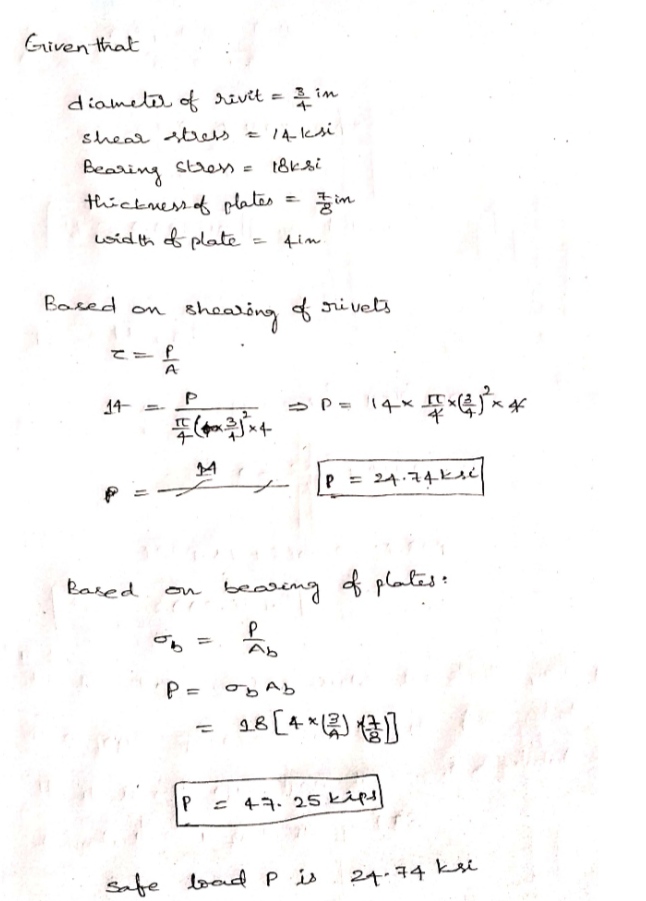 Given that
diameter of rivit = 3/4 in
shear stress = 14 ksi
Bearing stress = 18ksi
thickness of plates = 7/8 in
width of plate = 4in
Based on shearing of rivets
τ = P/A
14 = P / (π/4 (3/4)² × 4) ⇒ P = 14 × π/4 × (3/4)² × 4
P = P = 24.74 ksi
Based on bearing of plates:
σb = P/Ab
P = σb Ab
= 18 [4 × (3/4) × (7/8)]
P = 47.25 kips
Safe load P is 24.74 ksi